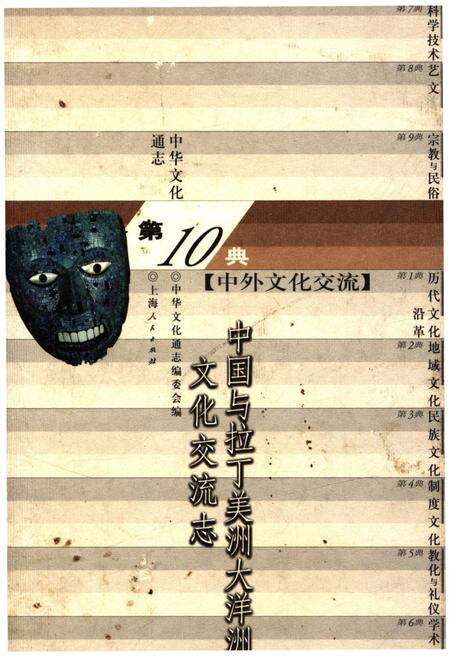 第7典
科学技术
第8典
艺文
第9典
宗教与民俗
中华文化
通志
第10典
【中外文化交流】
◎中华文化通志编委会编
◎上海人民出版社
中国与拉丁美洲大洋洲
文化交流志
第1典
历代文化
沿革
第2典
地域文化
第3典
民族文化
第4典
制度文化
第5典
教化与礼仪
第6典
学术